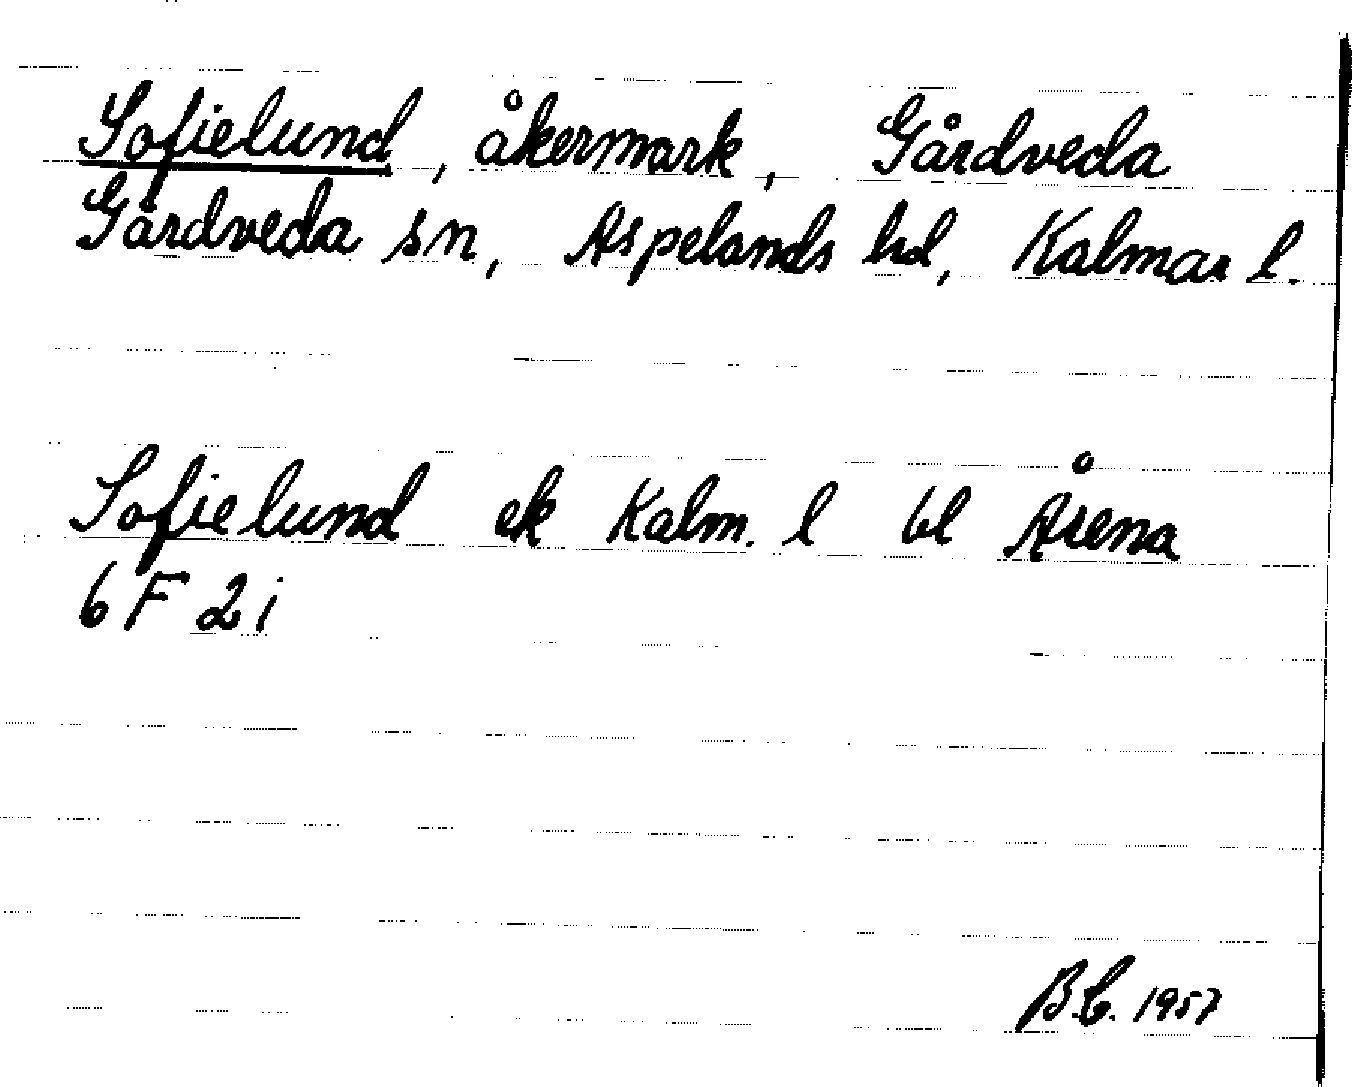 Sofielund, åkermark, Gårdveda
Gårdveda sn, Aspelands hd, Kalmar l.
Sofielund ek Kalm. l bl Årena
6 F 2 i
B.C. 1957